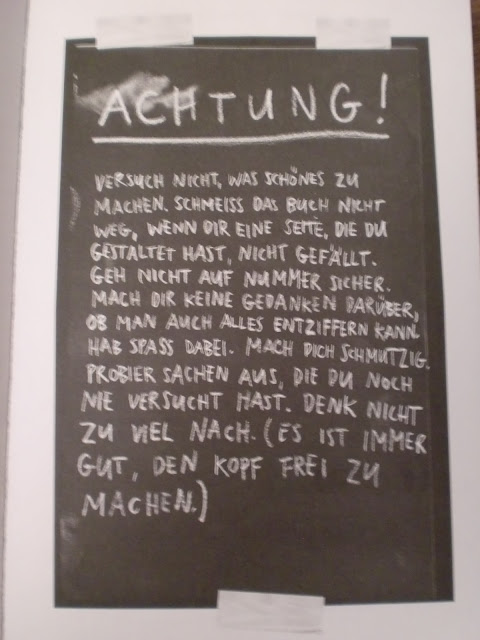 ACHTUNG!
VERSUCH NICHT, WAS SCHÖNES ZU
MACHEN. SCHMEISS DAS BUCH NICHT
WEG, WENN DIR EINE SEITE, DIE DU
GESTALTET HAST, NICHT GEFÄLLT.
GEH NICHT AUF NUMMER SICHER.
MACH DIR KEINE GEDANKEN DARÜBER,
OB MAN AUCH ALLES ENTZIFFERN KANN.
HAB SPASS DABEI. MACH DICH SCHMUTZIG.
PROBIER SACHEN AUS, DIE DU NOCH
NIE VERSUCHT HAST. DENK NICHT
ZU VIEL NACH. (ES IST IMMER
GUT, DEN KOPF FREI ZU
MACHEN.)